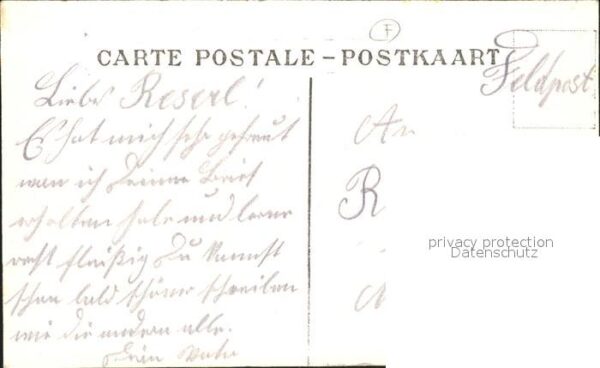 CARTE POSTALE – POSTKAART
F
Feldpost
Liebe Reserl!
Es hat mich sehr gefreut
wan ich Deinen Brief
erhalten habe und lerne
recht fleißig Du kannst
schon bald schöner schreiben
wie die andern alle.
Dein Vater
An
R
privacy protection
Datenschutz